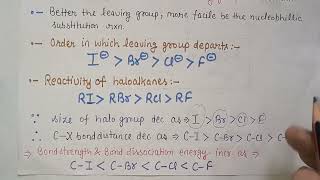 •- Better the leaving group, more facile be the nucleophillic
substitution rxn.
•- Order in which leaving group departs:-
I⊖ > Br⊖ > Cl⊖ > F⊖
•- Reactivity of haloalkanes:-
RI > RBr > RCl > RF
∵ size of halo group dec as ⇒ I > Br > Cl > F
∵ C-X bond distance dec as ⇒ C-I > C-Br > C-Cl >
⇒ Bond strength & Bond dissociation energy incr as ⇒
C-I < C-Br < C-Cl < C-F